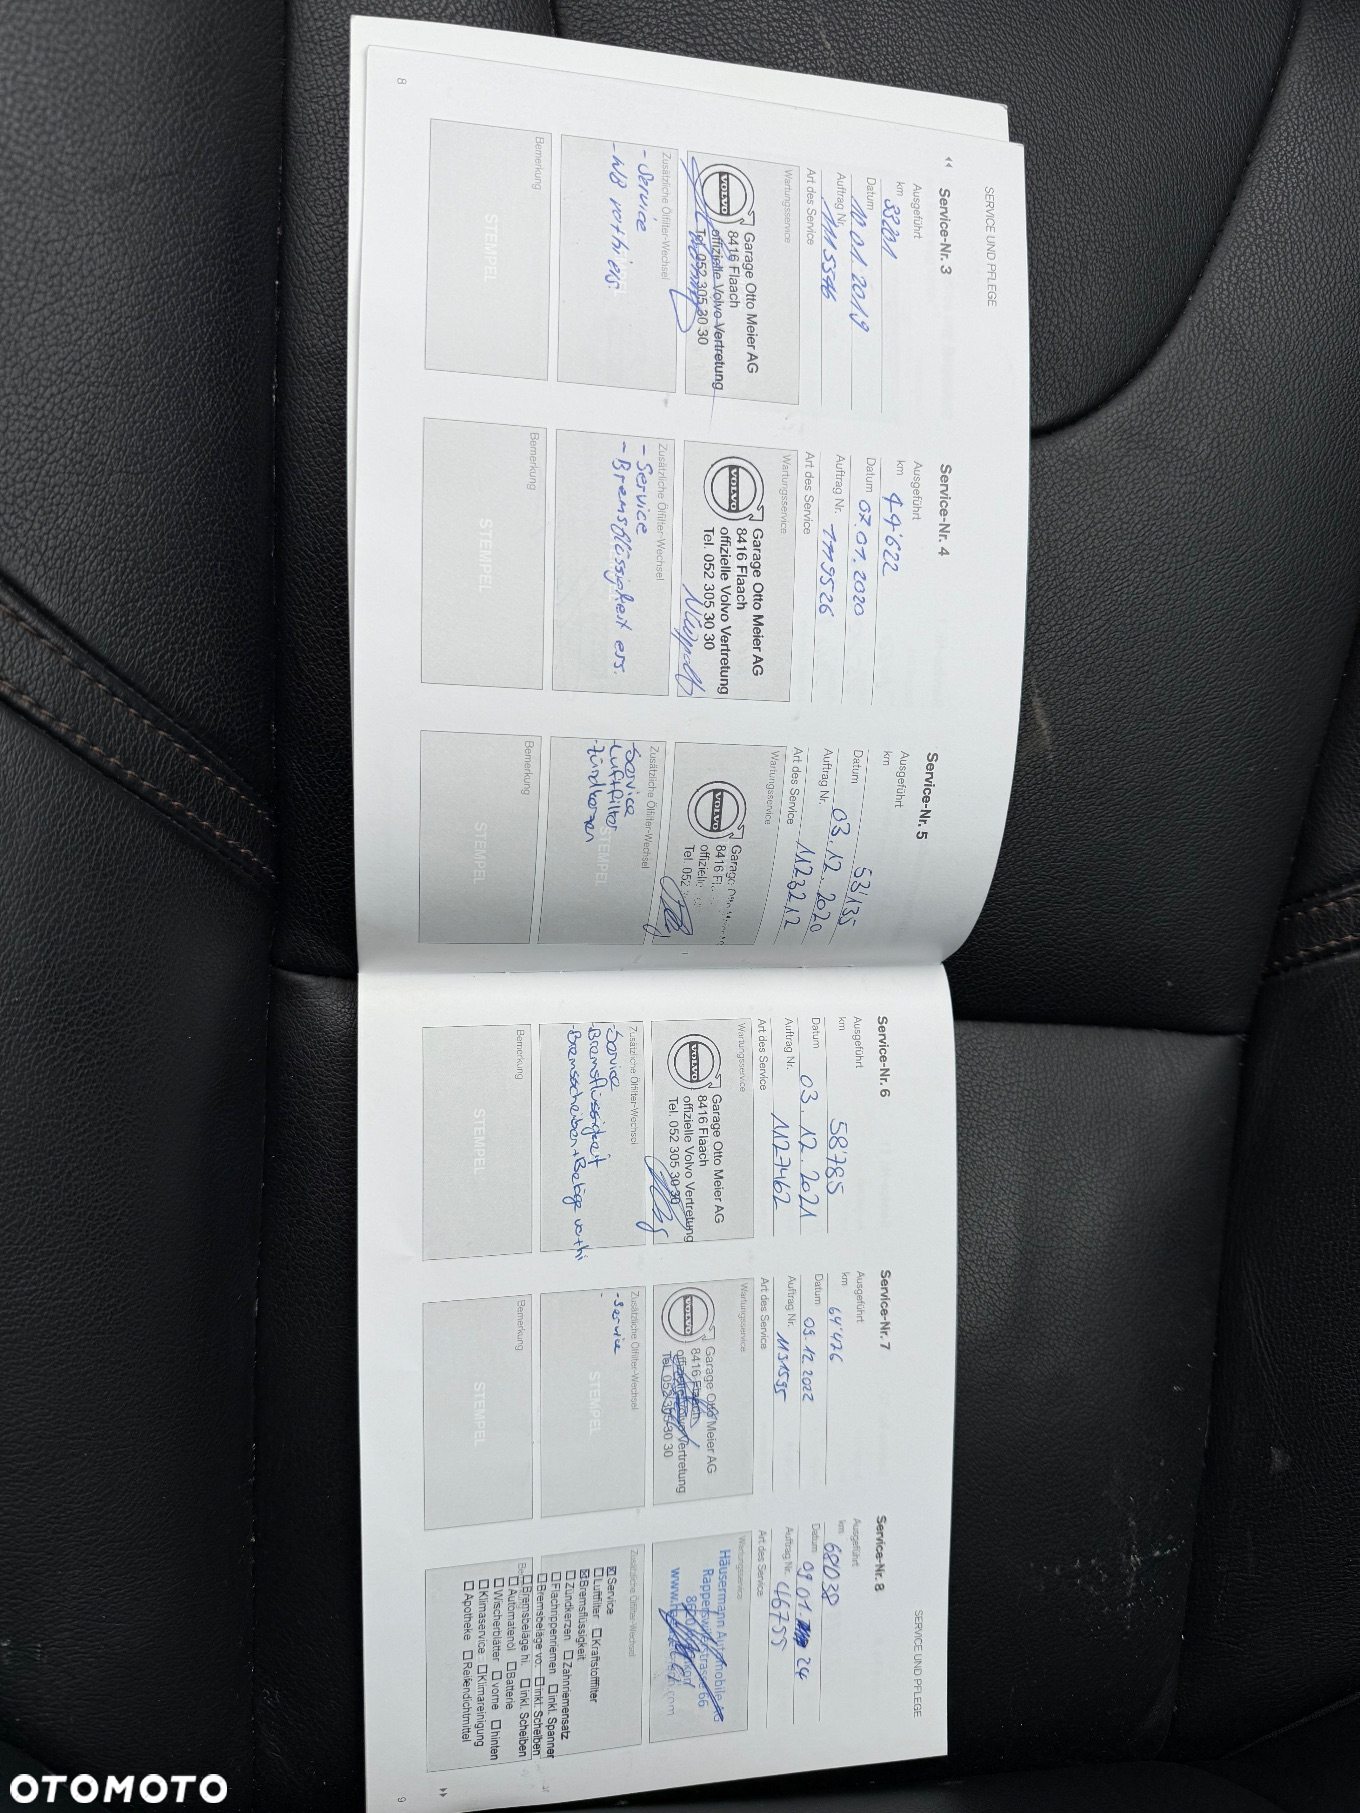 SERVICE UND PFLEGE
Service-Nr. 3
Ausgeführt
km 33201
Datum 10.01.2019
Auftrag Nr. 1115546
Art des Service
Wartungsservice
VOLVO
Garage Otto Meier AG
8416 Flaach
offizielle Volvo Vertretung
Tel. 052 305 30 30
Zusätzliche Ölfilter-Wechsel
- Service
- WB vo+hi ers.
Bemerkung
STEMPEL
Service-Nr. 4
Ausgeführt
km 44'622
Datum 07.01.2020
Auftrag Nr. 1119526
Art des Service
Wartungsservice
VOLVO
Garage Otto Meier AG
8416 Flaach
offizielle Volvo Vertretung
Tel. 052 305 30 30
Zusätzliche Ölfilter-Wechsel
- Service
- Bremsflüssigkeit ers.
Bemerkung
STEMPEL
Service-Nr. 5
Ausgeführt
km 53'135
Datum 03.12.2020
Auftrag Nr. 1123212
Art des Service
Wartungsservice
VOLVO
Garage
8416
offizielle
Tel. 052
Zusätzliche Ölfilter-Wechsel
-Service
-Luftfilter
-Zündkerzen
STEMPEL
Bemerkung
STEMPEL
8
SERVICE UND PFLEGE
Service-Nr. 6
Ausgeführt
km 58'785
Datum 03.12.2021
Auftrag Nr. 1127462
Art des Service
Wartungsservice
VOLVO
Garage Otto Meier AG
8416 Flaach
offizielle Volvo Vertretung
Tel. 052 305 30 30
Zusätzliche Ölfilter-Wechsel
-Service
-Bremsflüssigkeit
-Bremsscheiben+Beläge vo+hi
Bemerkung
STEMPEL
Service-Nr. 7
Ausgeführt
km 64'426
Datum 09.12.2022
Auftrag Nr. 1131595
Art des Service
Wartungsservice
VOLVO
Garage Otto Meier AG
8416 Flaach
offizielle Volvo Vertretung
Tel. 052 305 30 30
Zusätzliche Ölfilter-Wechsel
-Service
STEMPEL
Bemerkung
STEMPEL
Service-Nr. 8
Ausgeführt
km 68'038
Datum 09.01. 24
Auftrag Nr. 46755
Art des Service
Wartungsservice
Häusermann Automobile AG
66
Zusätzliche Ölfilter-Wechsel
☒ Service
☐ Luftfilter ☐ Kraftstofffilter
☒ Bremsflüssigkeit
☐ Zündkerzen ☐ Zahnriemensatz
☐ Flachrippenriemen ☐ inkl. Spanner
☐ Bremsbeläge vo. ☐ inkl. Scheiben
☐ Bremsbeläge hi. ☐ inkl. Scheiben
☐ Automatenöl ☐ Batterie
☐ Wischerblätter ☐ vorne ☐ hinten
☐ Klimaservice ☐ Klimareinigung
☐ Apotheke ☐ Reifendichtmittel
9
OTOMOTO